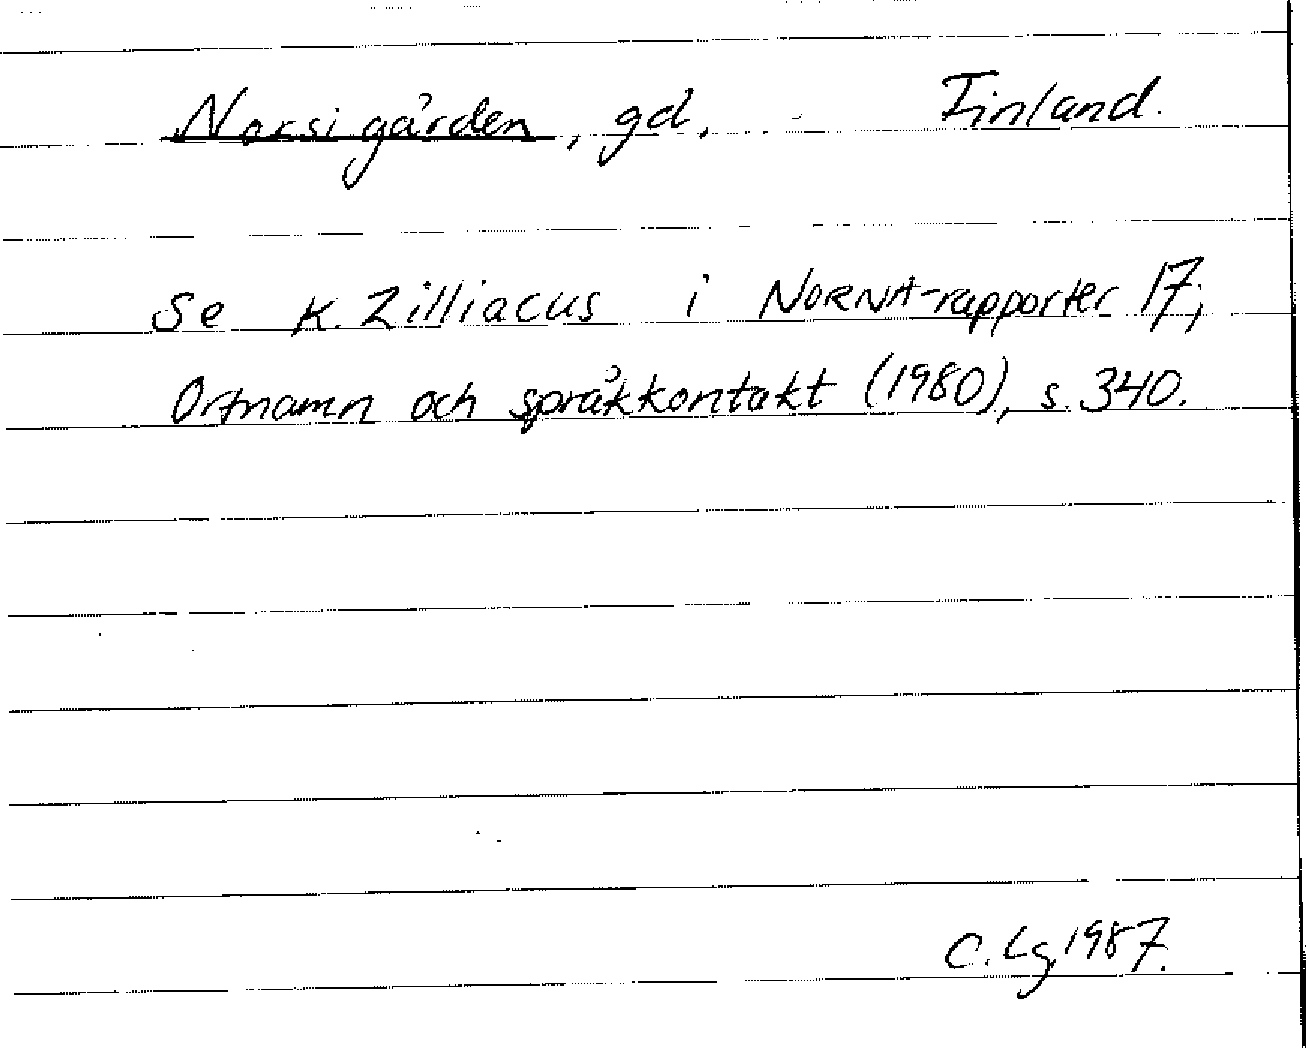 Norsigården, gd, Finland.
Se K. Zilliacus i NORNA-rapporter 17;
Ortnamn och språkkontakt (1980), s. 340.
C. Lg 1987.